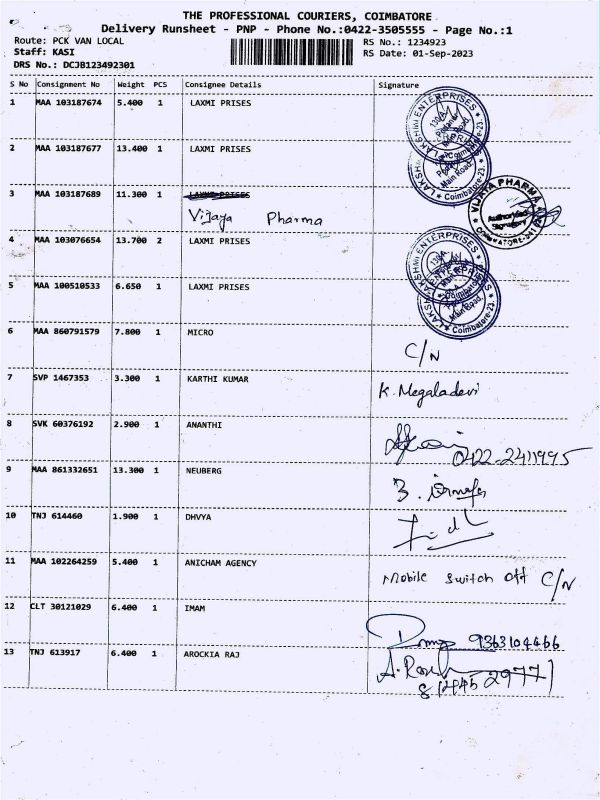 THE PROFESSIONAL COURIERS, COIMBATORE
Delivery Runsheet - PNP - Phone No.:0422-3505555 - Page No.:1
Route: PCK VAN LOCAL
RS No.: 1234923
Staff: KASI
RS Date: 01-Sep-2023
DRS No.: DCJB123492301
S No Consignment No Weight PCS Consignee Details Signature
1 MAA 103187674 5.400 1 LAXMI PRISES
LAKSHMI ENTERPRISES
2 MAA 103187677 13.400 1 LAXMI PRISES
Main Road,
Coimbatore-23.
3 MAA 103187689 11.300 1 LAXMI PRISES
Vijaya Pharma
VIJAYA PHARMA
Authorised
Signatory
4 MAA 103076654 13.700 2 LAXMI PRISES
LAKSHMI ENTERPRISES
5 MAA 100510533 6.650 1 LAXMI PRISES
Main Road,
Coimbatore-23.
6 MAA 860791579 7.800 1 MICRO C/N
7 SVP 1467353 3.300 1 KARTHI KUMAR K. Megaladevi
8 SVK 60376192 2.900 1 ANANTHI 0422-2411995
9 MAA 861332651 13.300 1 NEUBERG
10 TNJ 614460 1.900 1 DHVYA
11 MAA 102264259 5.400 1 ANICHAM AGENCY Mobile switch off C/N
12 CLT 30121029 6.400 1 IMAM 9363104466
13 TNJ 613917 6.400 1 AROCKIA RAJ